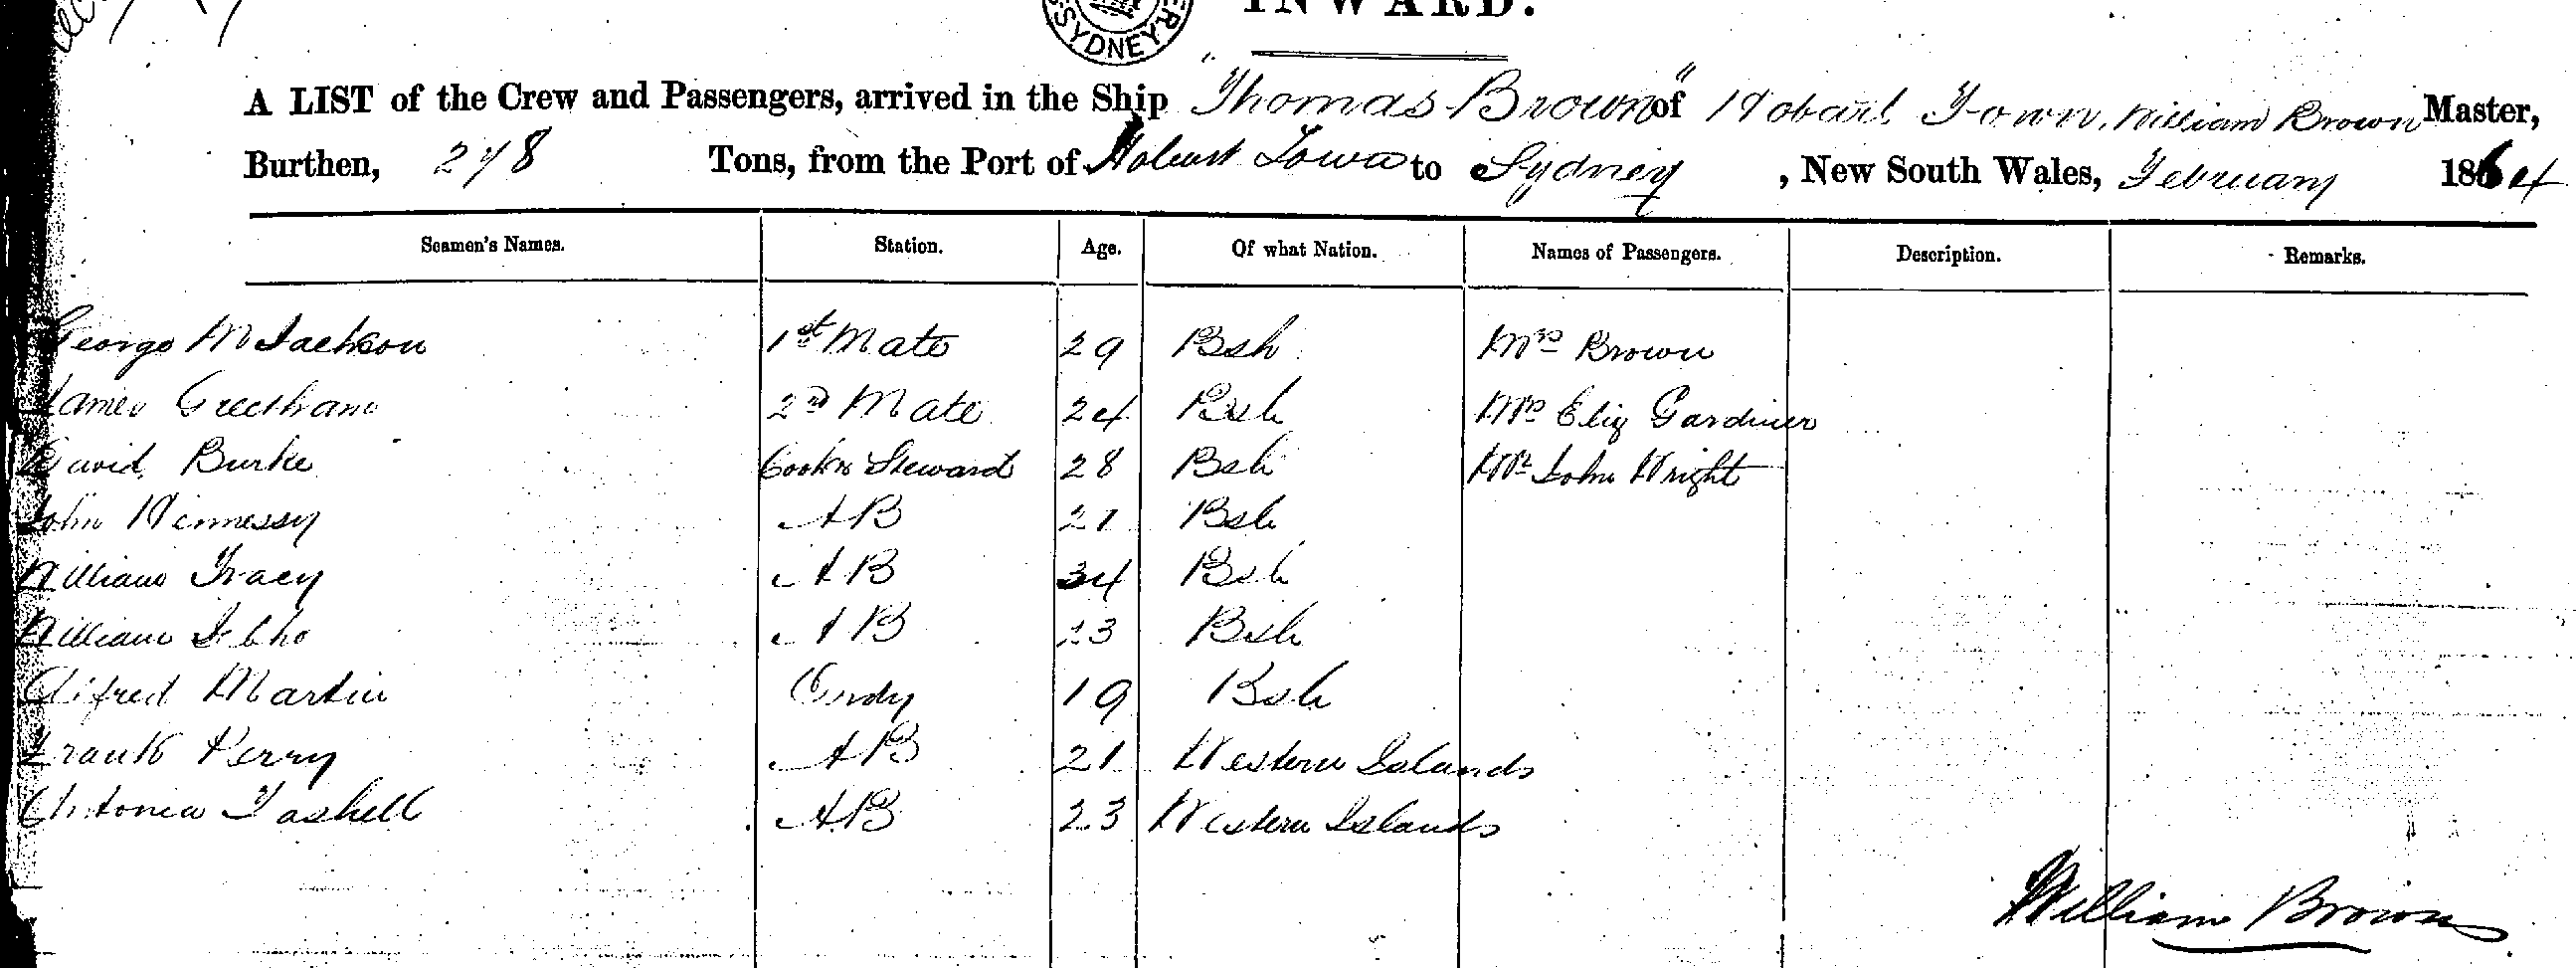 INWARD.
SYDNEY
A LIST of the Crew and Passengers, arrived in the Ship "Thomas Brown" of Hobart Town, William Brown Master,
Burthen, 248 Tons, from the Port of Hobart Town to Sydney, New South Wales, February 1864
Seamen's Names. Station. Age. Of what Nation. Names of Passengers. Description. Remarks.
George McJackson 1st Mate 29 Bsh Mrs Brown
James Greetham 2nd Mate 24 Bsh Mrs Eliz Gardiner
David Burke Cook & Steward 28 Bsh Mr John Wright
John Hennessy AB 21 Bsh
William Tracy AB 34 Bsh
William AB 23 Bsh
Alfred Martin Ordy 19 Bsh
Frank Perry AB 21 Western Islands
Antonia Tashell AB 23 Western Islands
William Brown